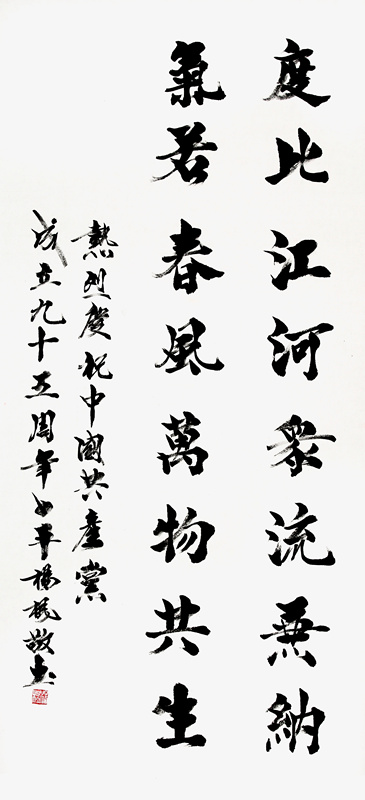 度比江河衆流兼納
氣若春風萬物共生
熱烈慶祝中國共產黨
成立九十五周年楊敬書